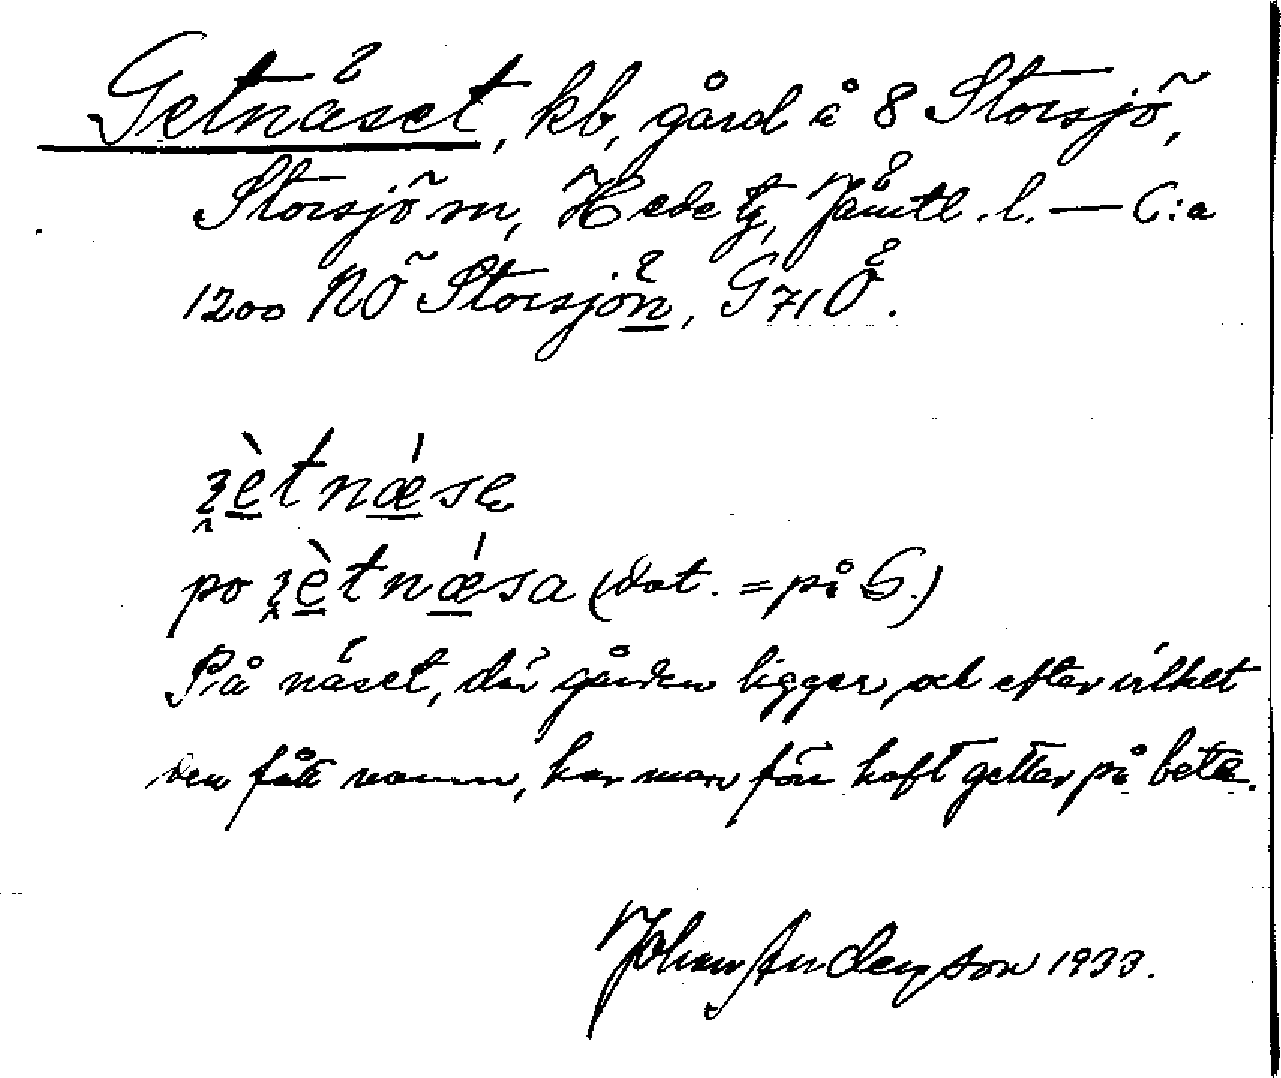 Getnäset, kb, gård å 8 Storsjö,
Storsjö sn, Hede tg, Jämtl. l. — C:a
1200 NÖ Storsjön, G 71 Ö.
ʒètnǽse
po ʒètnǽsa (dat. = på G.)
På näset, där gården ligger, och efter vilket
den fått namn, har man förr haft getter på bete.
Johan Anderson 1933.